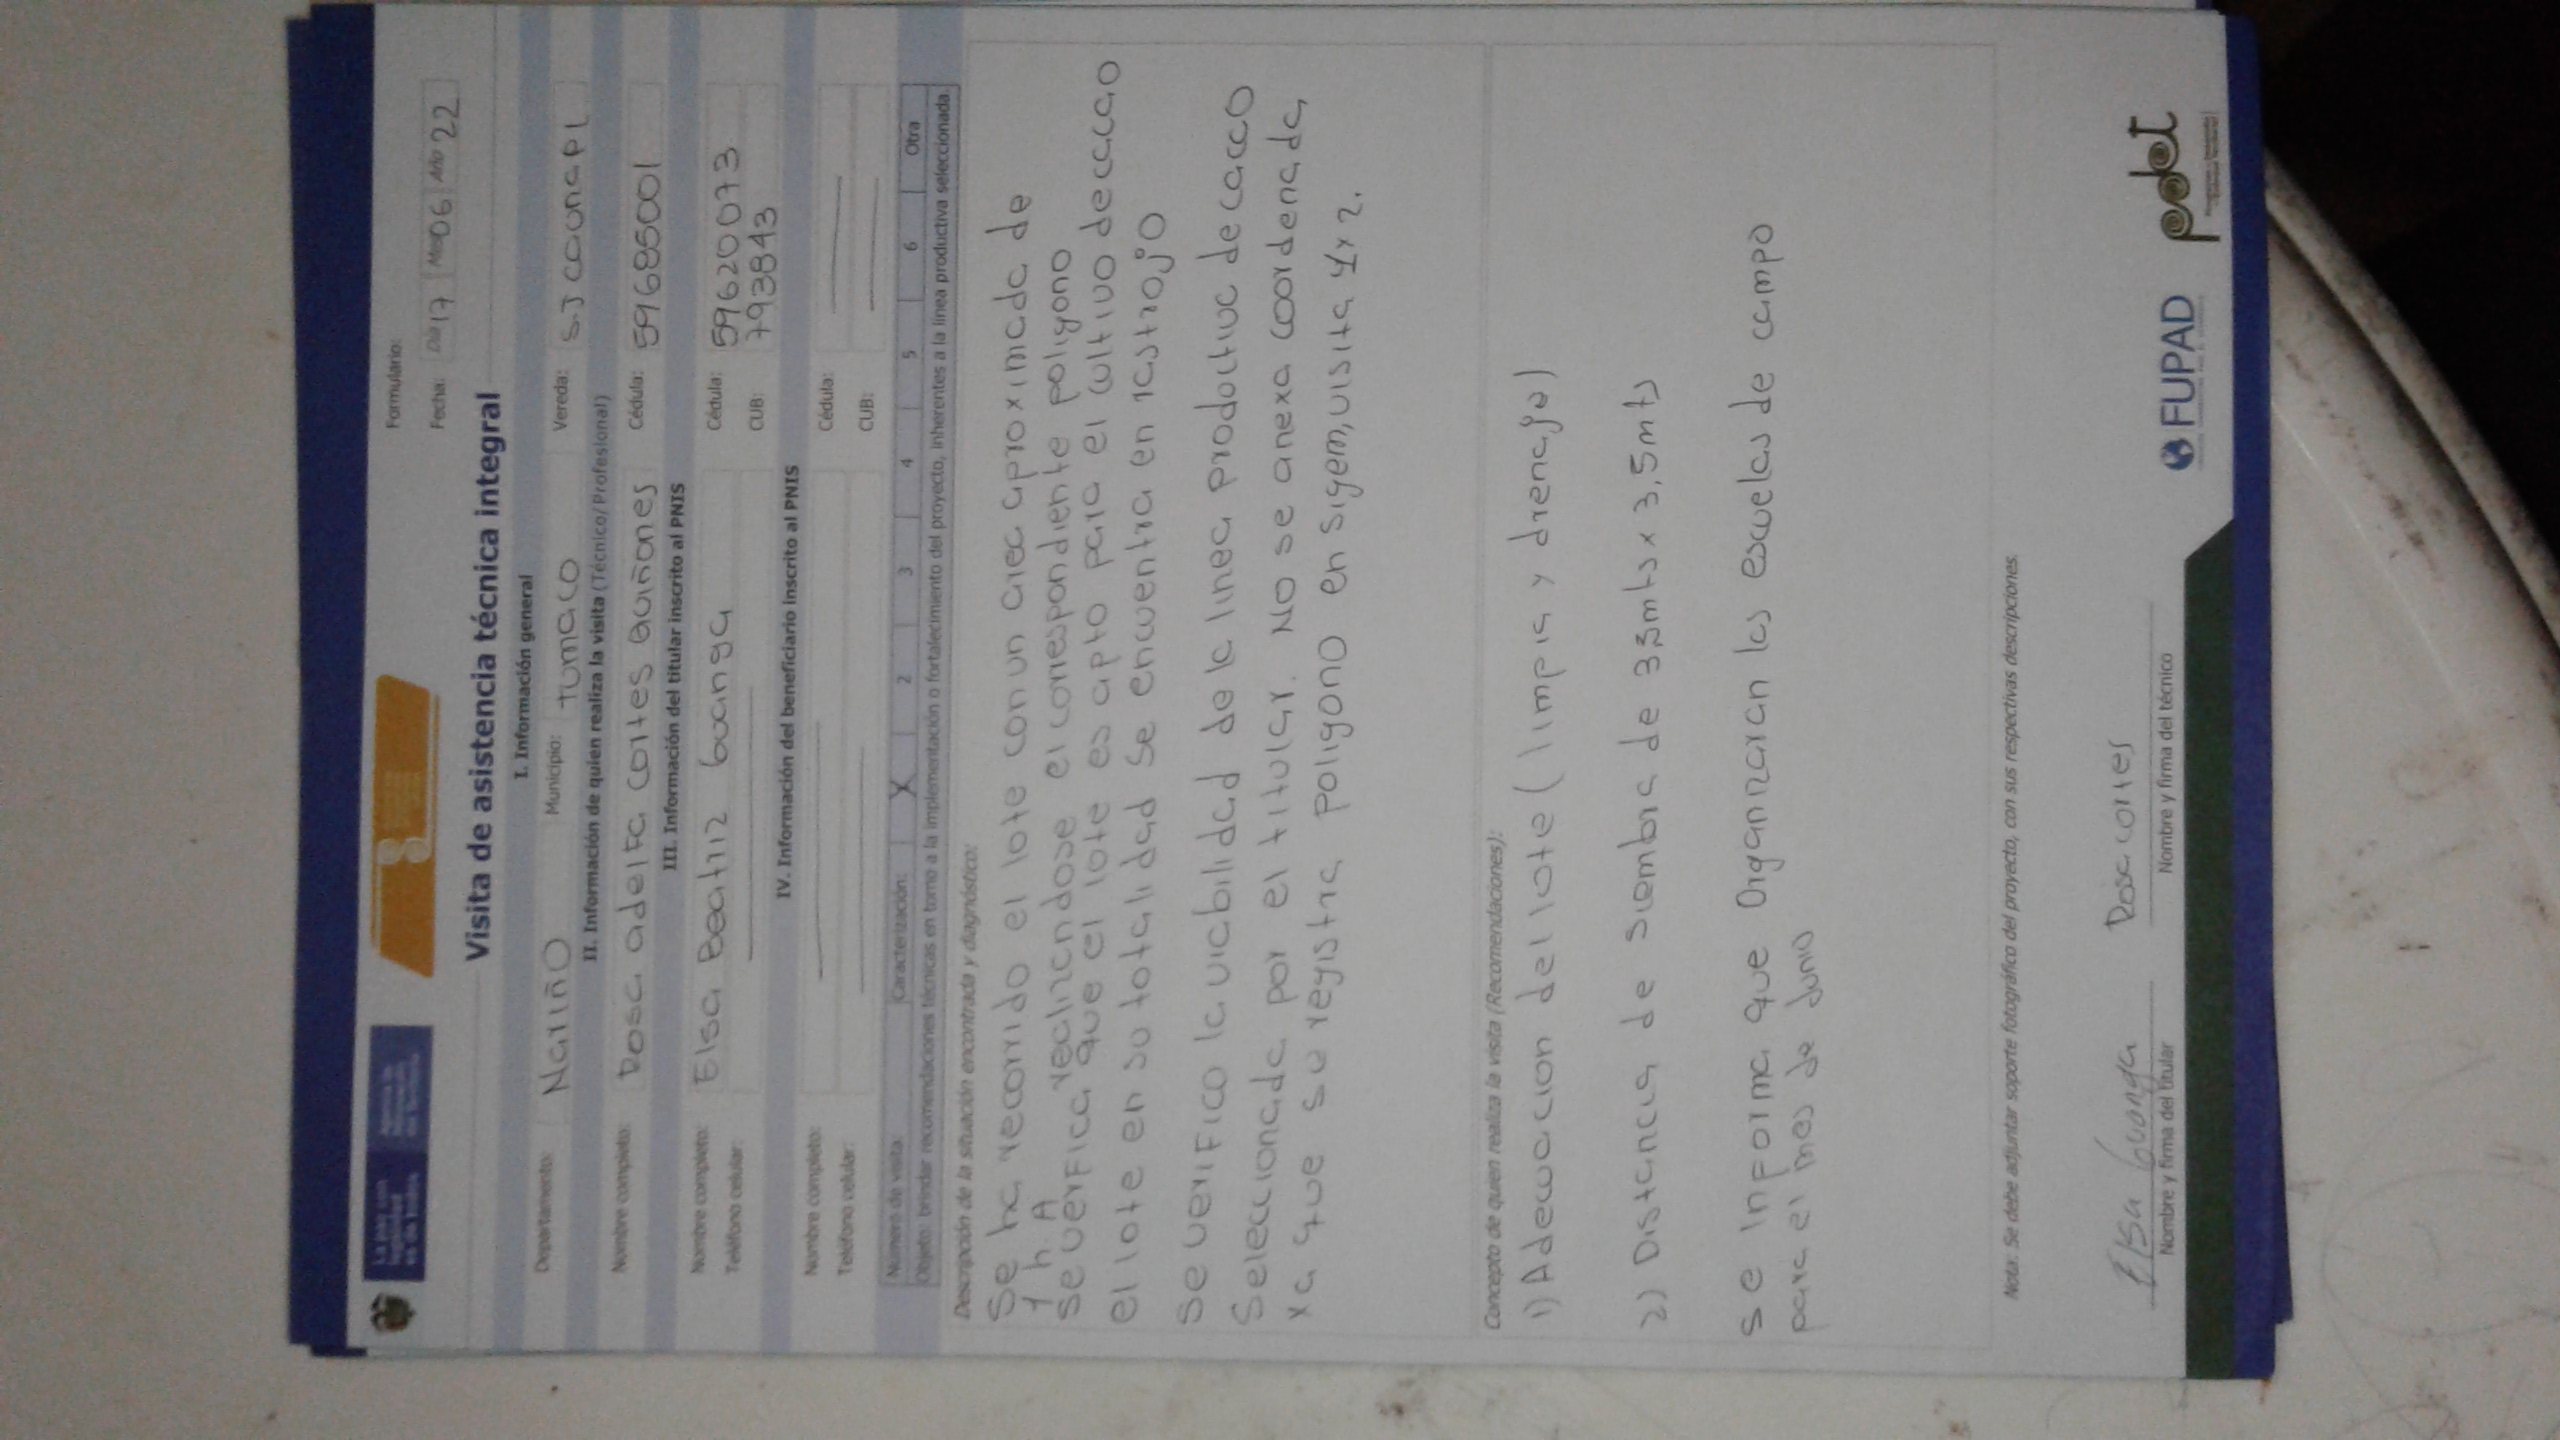 La paz con legalidad es de todos
Formulario:
Fecha: Día 17 Mes 06 Año 22
Visita de asistencia técnica integral
I. Información general
Departamento: Nariño Municipio: tumaco Vereda: S.J caunapi
II. Información de quien realiza la visita (Técnico/Profesional)
Nombre completo: Rosa adelfa cortes quiñones Cédula: 59685001
III. Información del titular inscrito al PNIS
Nombre completo: Elsa Beatriz buanga Cédula: 59620073
Teléfono celular: CUB: 7938843
IV. Información del beneficiario inscrito al PNIS
Nombre completo: Cédula:
Teléfono celular: CUB:
Número de visita: Caracterización: X 2 3 4 5 6 Otra
Objeto: brindar recomendaciones técnicas en torno a la implementación o fortalecimiento del proyecto, inherentes a la línea productiva seleccionada.
Descripción de la situación encontrada y diagnóstico:
Se ha recorrido el lote con un area aproximada de
1 h.A realizandose el correspondiente polygono
se verifica que el lote es apto para el cultivo de cacao
el lote en su totalidad se encuentra en rastrojo
se verifico la viabilidad de la linea productiva de cacao
seleccionada por el titular. No se anexa coordenada
xa que se registra poligono en sigem, visita 1 x 2.
Concepto de quien realiza la visita (Recomendaciones):
1) Adecuacion del lote (limpia y drenajes)
2) Distancia de siembra de 3,5mts x 3,5mts
se informa que organizaran las escuelas de campo
para el mes de Junio
Nota: Se debe adjuntar soporte fotográfico del proyecto, con sus respectivas descripciones.
Elsa buanga Rosa cortes
Nombre y firma del titular Nombre y firma del técnico
FUPAD pdet